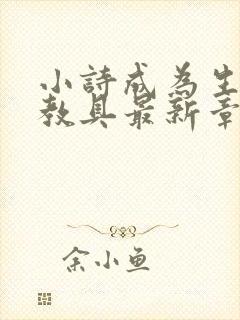 小詩成為生
教具最新章
余小鱼